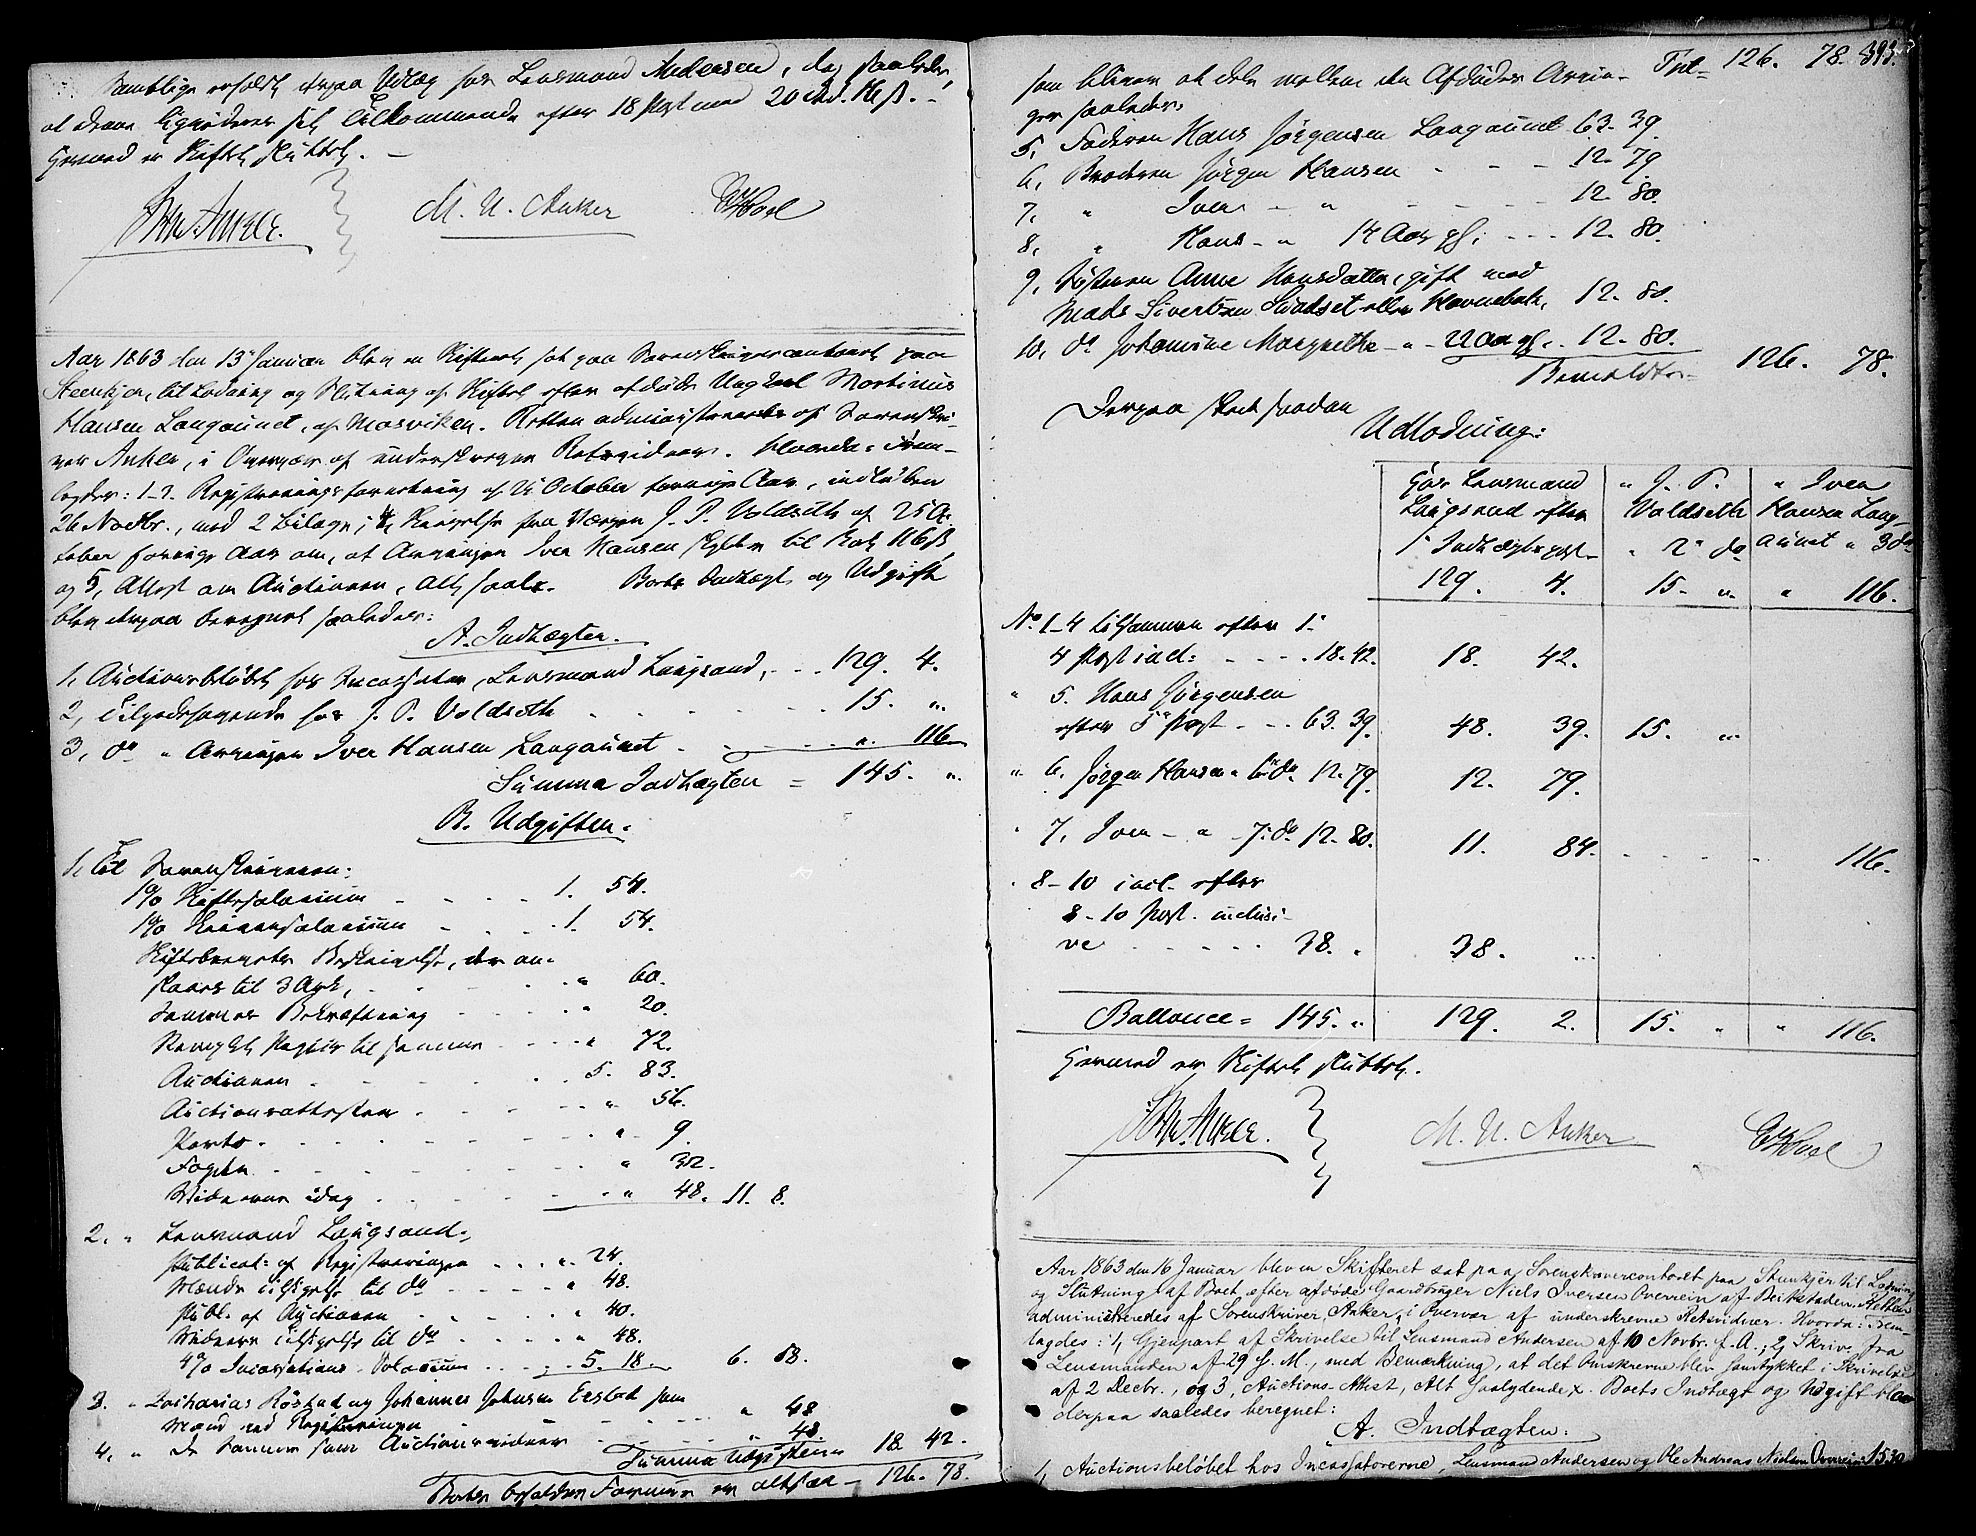 Samtlige opfaldt derpaa Udlæg hos Lensmand Andersen, dog saaledes,
at denne liqviderer sit Tilkommende efter 18 Post med 20 ... 
Hermed er Skiftet sluttet. –
M. N. Anker
Aar 1863 den 13 Januar blev en Skifteret sat paa Sorenskrivercontoret paa
Steenkjer, til Lodning og Slutning af Skiftet efter afdøde Ungkarl Martinus
Hansen Langaunet, af Mosviken. Retten administreredes af Sorenskri-
ver Anker, i Overvær af underskrevne Retsvidner. Hvorda: Frem-
lagdes: 1–3. Registreringsforretning af 21 October forrige Aar, indløben
26 Novbr., med 2 Bilage; 4, Skrivelse fra Værgen J. P. Voldseth af 25 Oc-
tober forrige Aar om, at Arvingen Iver Hansen skylder til Boet 116 ß,
og 5, Attest om Auctionen, Alt saal. Boets Indtægt og Udgift
blev derpaa beregnet saaledes:
A. Indtægten.
1, Auctionsbeløbet hos Incassator, Lensmand Langsand, . . 129. 4.
2, Tilgodehavende hos J. P. Voldseth . . . 15. "
3, do " Arvingen Iver Hansen Langaunet . . . " 116.
Summa Indtægten = 145. "
B. Udgiften:
1, Til Sorenskriveren:
1% Skiftesalarium . . . 1. 54.
1% Skriversalarium . . . 1. 54.
Skiftebrevets Beskrivelse, der an-
slaaes til 3 Ark, . . . " 60.
Sammes Bekræftning . . . " 20.
Stemplet Papiir til samme . . . " 72.
Auctionen . . . 5. 83.
Auctionsattesten . . . " 56.
Porto . . . " 9.
Fogden . . . " 32.
Vidnerne idag . . . " 48. 11. 8.
2. " Lensmand Langsand:
Publicat: af Registreringen . . . " 24.
Mænds Tilsigelse til do . . . " 48.
Publ. af Auctionen . . . " 40.
Vidners Tilsigelse til do . . . " 48.
4% Incassations-Salarium . . . 5. 18. 6. 58.
3. " Zacharias Røstad og Johannes Johnsen Erstad som
Mænd ved Registreringen . . . " 48
4, " De Samme som Auctionsvidner . . . 48.
Summa Udgiften 18. 42.
Boets beholdne Formue er altsaa – 126. 78.
393.
som bliver at dele mellem den Afdødes Arvin- Tpt – 126. 78.
ger saaledes:
5, Faderen Hans Jørgensen Langaunet 63. 39.
6, Broderen Jørgen Hansen . . . 12. 79.
7, " Iver – " . . . 12. 80.
8, " Hans – " 14 Aar gl: . . . 12. 80.
9, Søsteren Anne Hansdatter, gift med
Mads Sivertsen Svadset eller Havnebak, 12. 80.
10, do Johannine Margrethe – " – 22 Aar gl. 12. 80.
Bemeldte – 126. 78.
Derpaa skeet saadan
Udlodning:
Hos Lensmand " J. P. " Iver
Langsand efter Voldseth Hansen Lang-
1 Indtægtspost " 2 do aunet " 3 do
129. 4. 15. " " 116.
No 1–4 tilsammen efter 1–
4 Post incl: . . . 18. 42. 18. 42.
" 5. Hans Jørgensen
efter 5 Post . . . 63. 39. 48. 39. 15. "
" 6. Jørgen Hansen " 6 do 12. 79. 12. 79.
" 7, Iver – " – 7 do 12. 80. 11. 84. . . . 116.
" 8–10 incl. efter
8–10 Post. inclusi-
ve . . . 38. " 38. "
Ballance = 145. " 129. 2. 15. " " 116.
Hermed er Skiftet sluttet.
M. N. Anker
Aar 1863 den 16 Januar blev en Skifteret sat paa Sorenskrivercontoret paa Stenkjer til Lodning
og Slutning af Boet efter afdøde Gaardbruger Niels Iversen Overrein af Beitstaden. Retten
administreredes af Sorenskriver Anker, i Overvær af underskrevne Retsvidner. Hvorda: Frem-
lagdes: 1, Gjenpart af Skrivelse til Lensmand Andersen af 10 Novbr. f. A.; 2, Skriv. fra
Lensmanden af 29 s. M., med Bemærkning, at det Omskrevne blev samtykket i Skrivelse
af 2 Decbr., og 3, Auctions-Attest, Alt saalydende. Boets Indtægt og Udgift blev
derpaa saaledes beregnet:
A. Indtægten:
1, Auctionsbeløbet hos Incassatorerne, Lensmand Andersen og Ole Andreas Nielsen Overrein